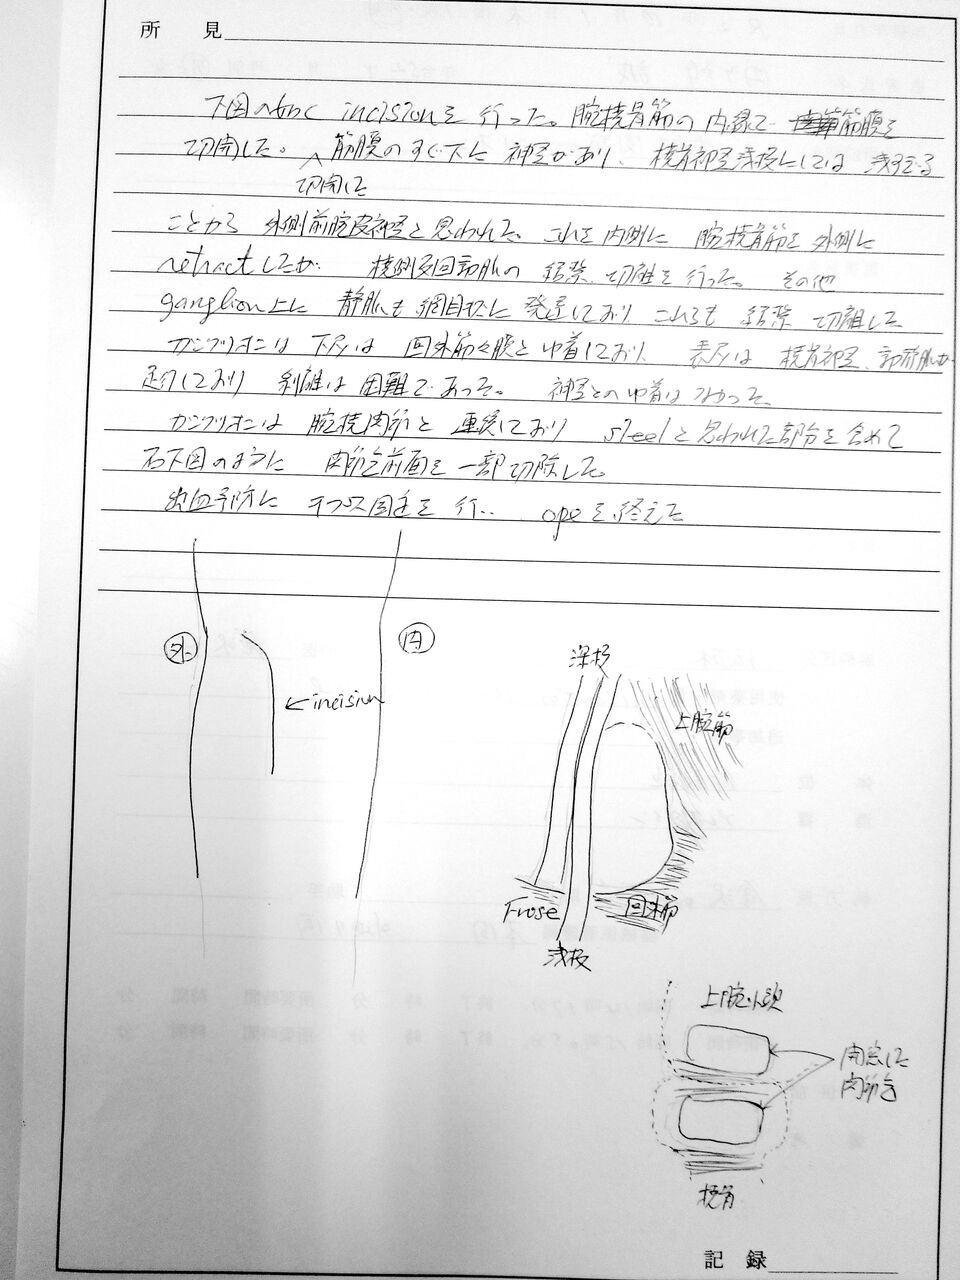 所 見
下図の如く incisionを行った。腕橈骨筋の内縁で 筋膜を
切開した。筋膜のすぐ下に神経があり、橈骨神経浅枝にしては浅すぎる
切開した
ことから 外側前腕皮神経と思われた。これを内側に 腕橈骨筋を外側に
retractしたが 橈側反回動脈の結紮、切離を行った。その他
ganglion上に 静脈も網目状に発達しており これらも結紮 切離した
ガングリオンは 下方は 回外筋々膜と癒着しており 表層は 橈骨神経、動静脈が
走行しており 剥離は困難であった。神経との癒着はなかった。
ガングリオンは 腕橈関節と連続しており steelと思われた部分を含めて
右下図のように 関節包前面を一部切除した。
出血予防に ギプス固定を行い opeを終えた
外
内
←incision
深枝
上腕筋
Frose
回外筋
浅枝
上腕小頭
開窓した
関節包
橈骨
記 録